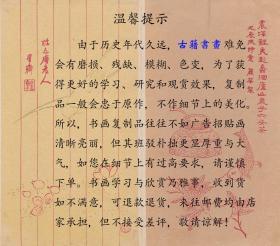 温馨提示
由于历史年代久远，古籍书画难免
会有磨损、残缺、模糊、色变，为了获
得更好的学习、研究和观赏效果，复制
品一般会忠于原作，不作细节上的美化。
所以，书画复制品往往不如广告招贴画
清晰亮丽，但其斑驳朴拙更显厚重与大
气，如您在细节上有过高要求，请谨慎
下单。书画学习与欣赏乃雅事，收到货
如不满意，可退款退货，来往邮费均由店
家承担，但不接受差评，敬请谅解！